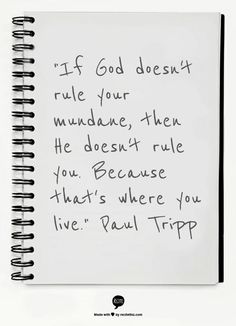 "If God doesn't
rule your
mundane, then
He doesn't rule
you. Because
that's where you
live." Paul Tripp
Made with ♥ by recitethis.com